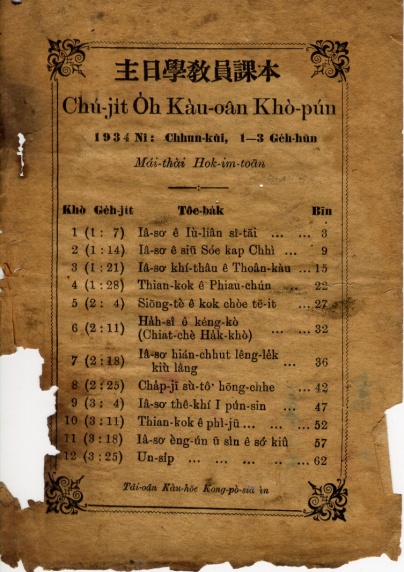 主日學教員課本
Chú-ji̍t O̍h Kàu-oân Khò-pún
1934 Nî: Chhun-kùi, 1—3 Ge̍h-hūn
Má-thài Hok-im-toān
Khò Ge̍h-ji̍t Tôe-ba̍k Bīn
1 (1: 7) Iâ-so͘ ê Iù-liân sî-tāi ... ... 3
2 (1:14) Iâ-so͘ ê siū Sóe kap Chhì ... 9
3 (1:21) Iâ-so͘ khí-thâu ê Thoân-kàu ... 15
4 (1:28) Thian-kok ê Phiau-chún ... 22
5 (2: 4) Siōng-tè ê kok chòe tē-it ... 27
6 (2:11) Ha̍h-sî ê kéng-kò
(Chiat-chè Ha̍k-khò) ... ... 32
7 (2:18) Iâ-so͘ hián-chhut lêng-le̍k
kiù lâng ... 36
8 (2:25) Cha̍p-jī sù-tô͘ hōng-chhe ... 42
9 (3: 4) Iâ-so͘ thê-khí I pún-sin ... 47
10 (3:11) Thian-kok ê phì-jū ... ... 52
11 (3:18) Iâ-so͘ èng-ún ū sìn ê só͘ kiû 57
12 (3:25) Un-si̍p ... ... ... .. ... 62
Tâi-oân Kàu-hōe Kong-pò-siā ìn